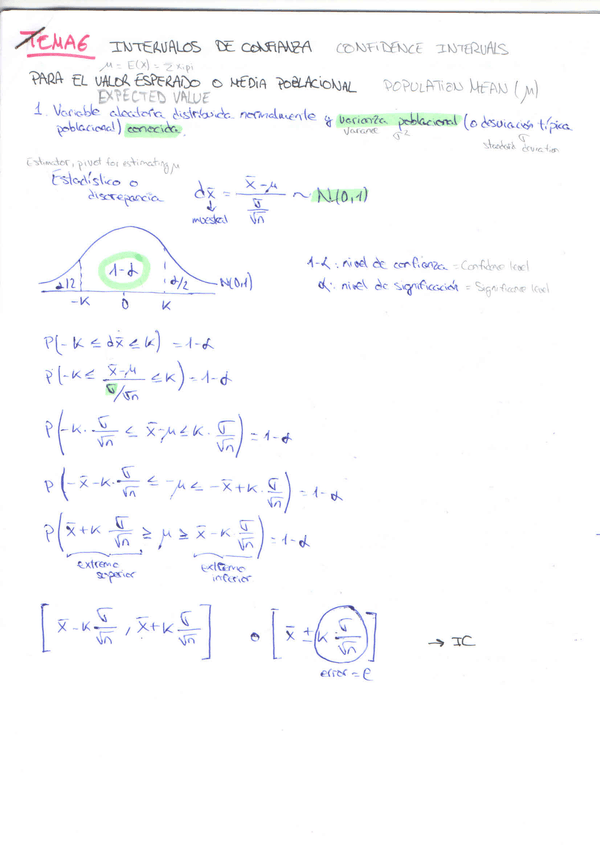 TEMA6 INTERVALOS DE CONFIANZA CONFIDENCE INTERVALS
μ = E(X) = Σ xi pi
PARA EL VALOR ESPERADO O MEDIA POBLACIONAL POPULATION MEAN (μ)
EXPECTED VALUE
1. Variable aleatoria distribuida normalmente y varianza poblacional (o desviación típica
variance σ² σ
poblacional) conocida.
standard deviation
Estimator, pivot for estimating μ
Estadístico o
discrepancia
dx̄ = (x̄ - μ) / (σ/√n) ~ N(0,1)
muestral
1-α
α/2 α/2 N(0,1)
-K 0 K
1-α: nivel de confianza = Confidence level
α: nivel de significación = Significance level
P(-K ≤ dx̄ ≤ K) = 1-α
P(-K ≤ (x̄-μ) / (σ/√n) ≤ K) = 1-α
P(-K · σ/√n ≤ x̄-μ ≤ K · σ/√n) = 1-α
P(-x̄-K · σ/√n ≤ -μ ≤ -x̄+K · σ/√n) = 1-α
P(x̄+K · σ/√n ≥ μ ≥ x̄-K · σ/√n) = 1-α
extremo superior extremo inferior
[x̄-K σ/√n , x̄+K σ/√n] o [x̄ ± K · σ/√n] → IC
error = e